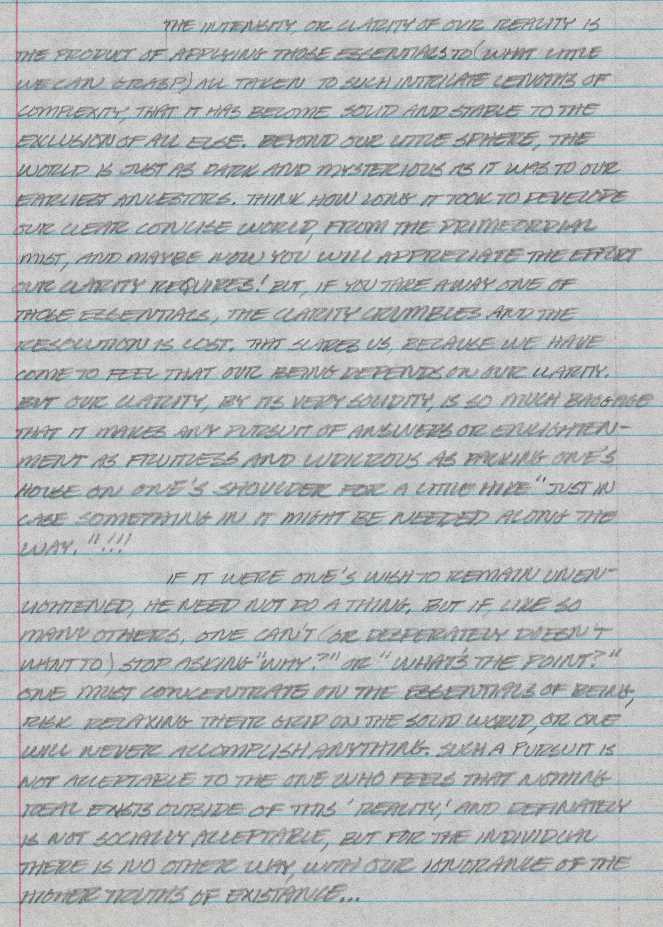 THE INTENSITY OR CLARITY OF OUR REALITY IS
THE PRODUCT OF APPLYING THOSE ESSENTIALS TO (WHAT LITTLE
WE CAN GRASP) ALL TAKEN TO SUCH INTRICATE LENGTHS OF
COMPLEXITY, THAT IT HAS BECOME SOLID AND STABLE TO THE
EXCLUSION OF ALL ELSE. BEYOND OUR LITTLE SPHERE, THE
WORLD IS JUST AS DARK AND MYSTERIOUS AS IT WAS TO OUR
EARLIEST ANCESTORS. THINK HOW LONG IT TOOK TO DEVELOPE
OUR CLEAR CONCISE WORLD, FROM THE PRIMEORDIAL
MIST, AND MAYBE NOW YOU WILL APPRECIATE THE EFFORT
OUR CLARITY REQUIRES! BUT, IF YOU TAKE AWAY ONE OF
THOSE ESSENTIALS, THE CLARITY CRUMBLES AND THE
RESOLUTION IS LOST. THAT SCARES US, BECAUSE WE HAVE
COME TO FEEL THAT OUR BEING DEPENDS ON OUR CLARITY.
BUT OUR CLARITY, BY ITS VERY SOLIDITY, IS SO MUCH BAGGAGE
THAT IT MAKES ANY PURSUIT OF ANSWERS OR ENLIGHTEN-
MENT AS FRUITLESS AND LUDICROUS AS PACKING ONE'S
HOUSE ON ONE'S SHOULDER FOR A LITTLE HIKE "JUST IN
CASE SOMETHING IN IT MIGHT BE NEEDED ALONG THE
WAY."!!!
IF IT WERE ONE'S WISH TO REMAIN UNEN-
LIGHTENED, HE NEED NOT DO A THING. BUT IF, LIKE SO
MANY OTHERS, ONE CAN'T (OR DESPERATELY DOESN'T
WANT TO) STOP ASKING "WHY?" OR "WHAT'S THE POINT?"
ONE MUST CONCENTRATE ON THE ESSENTIALS OF BEING,
RISK RELAXING THEIR GRIP ON THE SOLID WORLD, OR ONE
WILL NEVER ACCOMPLISH ANYTHING. SUCH A PURSUIT IS
NOT ACCEPTABLE TO THE ONE WHO FEELS THAT NOTHING
REAL EXISTS OUTSIDE OF THIS 'REALITY,' AND DEFINATELY
IS NOT SOCIALLY ACCEPTABLE, BUT FOR THE INDIVIDUAL
THERE IS NO OTHER WAY, WITH OUR IGNORANCE OF THE
HIGHER TRUTHS OF EXISTANCE...